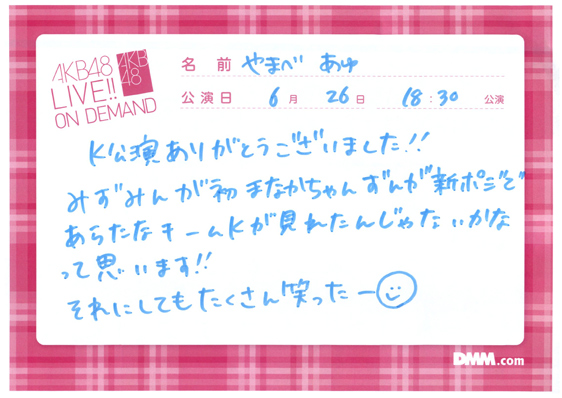 AKB48
LIVE!!
ON DEMAND
AKB
48
名 前 やまべ あゆ
公演日 6月 26日 18:30 公演
K公演ありがとうございました!!
みずみんが初まなかちゃんずんが新ポジで
あらたなチームKが見れたんじゃないかな
って思います!!
それにしてもたくさん笑ったー
DMM.com